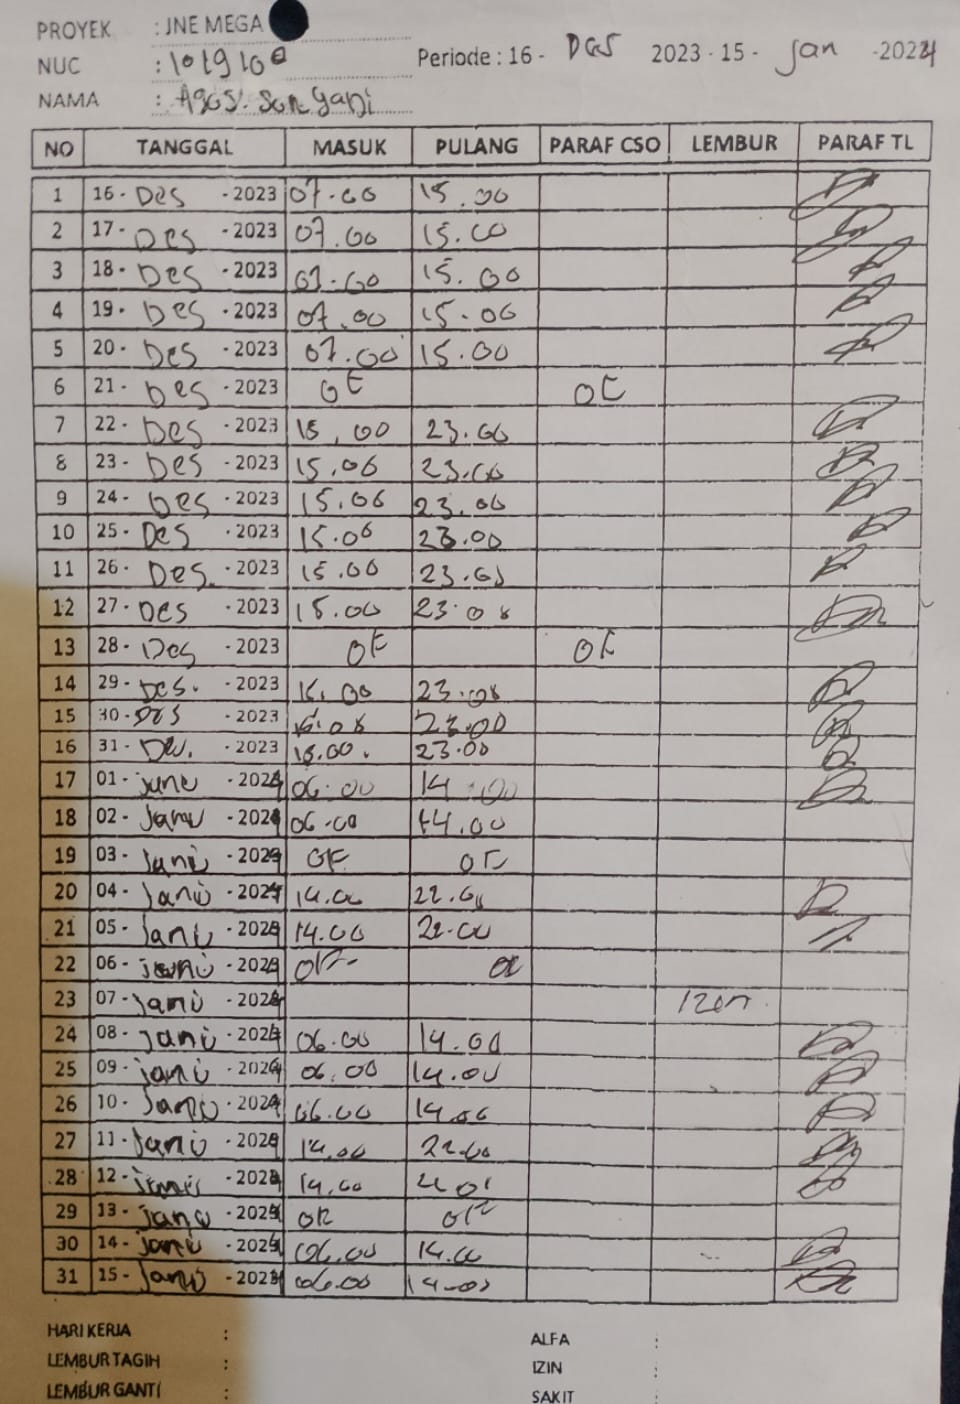 PROYEK : JNE MEGA
NUC : 1019100
Periode : 16 - Des 2023 - 15 - Jan - 2024
NAMA : Agos.
NO TANGGAL MASUK PULANG PARAF CSO LEMBUR PARAF TL
1 16 - Des - 2023 07.00 15.00
2 17 - Des - 2023 07.00 15.00
3 18 - Des - 2023 07.00 15.00
4 19 - Des - 2023 07.00 15.00
5 20 - Des - 2023 07.00 15.00
6 21 - Des - 2023 OF OF
7 22 - Des - 2023 15.00 23.00
8 23 - Des - 2023 15.00 23.00
9 24 - Des - 2023 15.00 23.00
10 25 - Des - 2023 15.00 23.00
11 26 - Des - 2023 15.00 23.00
12 27 - Des - 2023 15.00 23.00
13 28 - Des - 2023 OF OF
14 29 - Des. - 2023 15.00 23.00
15 30 - Des - 2023 23.00
16 31 - - 2023 15.00. 23.00
17 01 - janu - 2024 06.00 14.00
18 02 - Janu - 2024 06.00 14.00
19 03 - Janu - 2024 OF OF
20 04 - Janu - 2024 14.00 22.00
21 05 - Janu - 2024 14.00 22.00
22 06 - janu - 2024 OF
23 07 - Janu - 2024 Izen
24 08 - Janu - 2024 06.00 14.00
25 09 - janu - 2024 06.00 14.00
26 10 - Janu - 2024 06.00 14.00
27 11 - Janu - 2024 14.00 22.00
28 12 - janu - 2024 14.00
29 13 - janu - 2024 OF OF
30 14 - janu - 2024 06.00 14.00
31 15 - Janu - 2024 06.00 14.00
HARI KERJA :
ALFA :
LEMBUR TAGIH :
IZIN :
LEMBUR GANTI :
SAKIT :